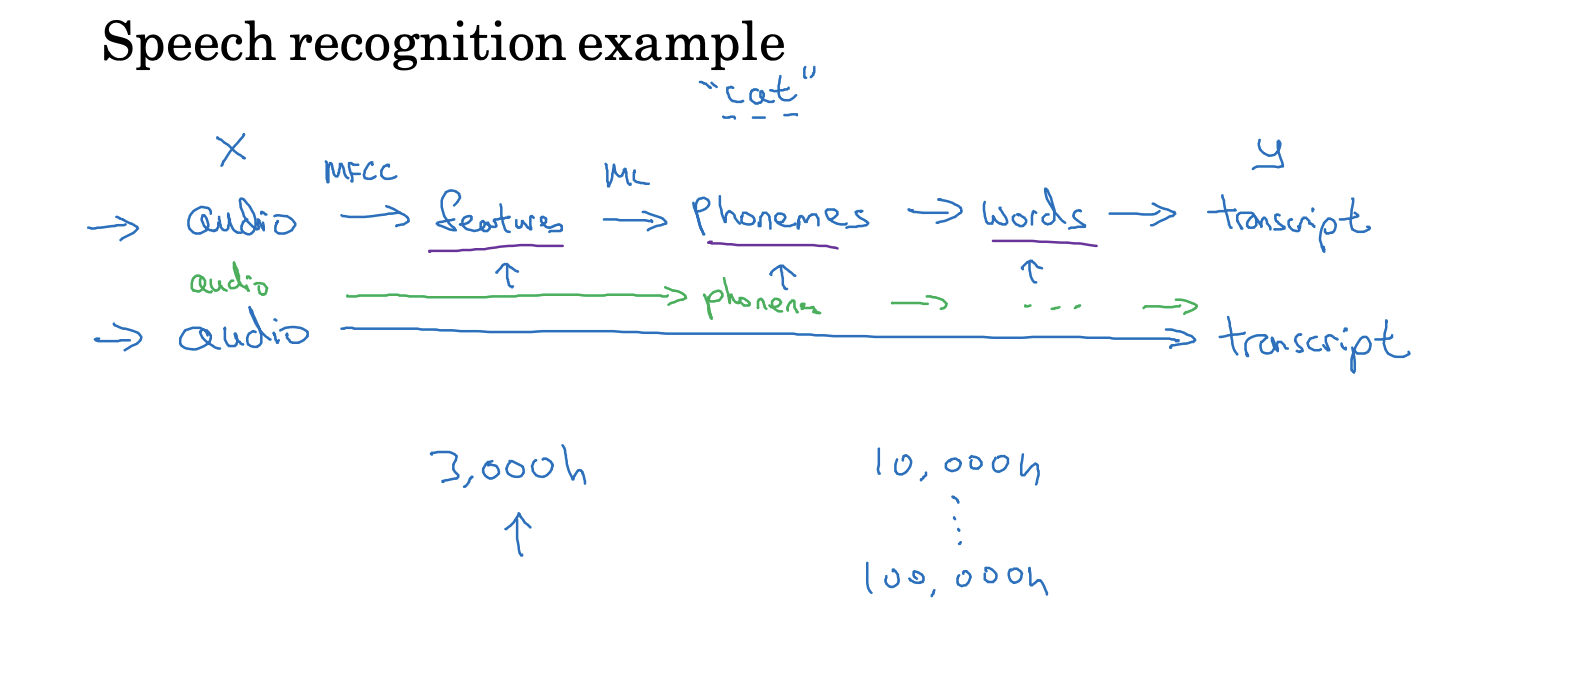 Speech recognition example
"cat"
X y
MFCC ML
→ audio → features → phonemes → words → transcript
↑ ↑ ↑
audio → phonemes → ... →
→ audio → transcript
3,000h 10,000h
↑ ⋮
100,000h